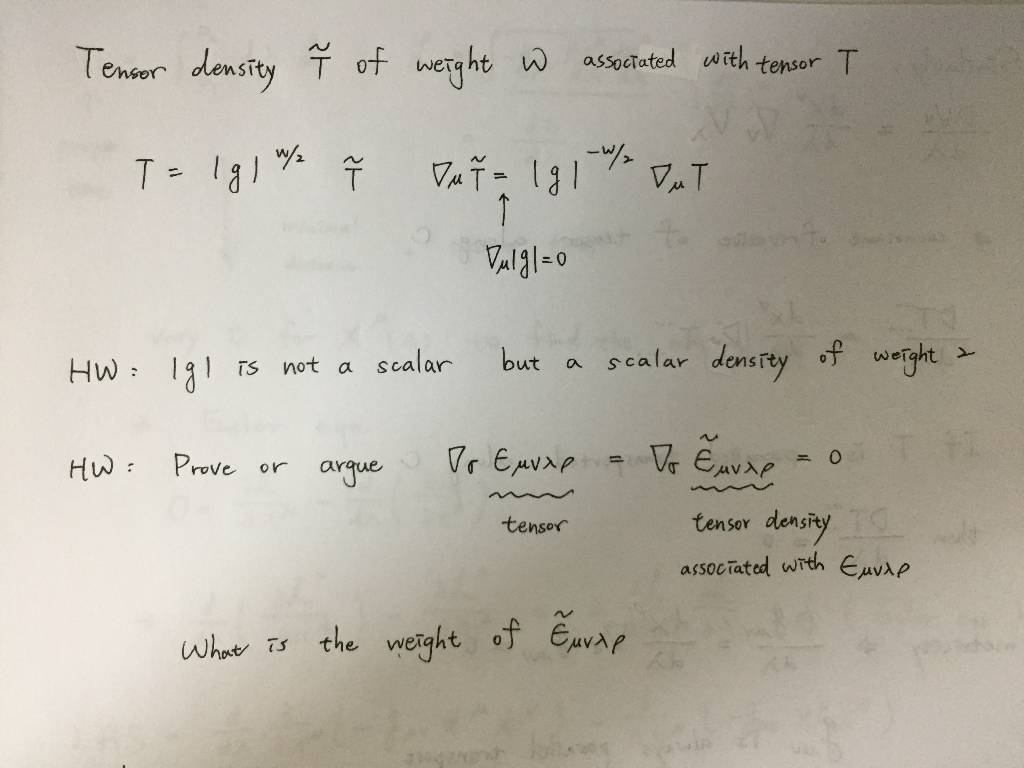 Tensor density T̃ of weight W associated with tensor T
T = |g|^{W/2} T̃ ∇_μ T̃ = |g|^{-W/2} ∇_μ T
↑
∇_μ|g|=0
HW: |g| is not a scalar but a scalar density of weight 2
HW: Prove or argue ∇_σ ϵ_{μνλρ} = ∇_σ ϵ̃_{μνλρ} = 0
tensor tensor density
associated with ϵ_{μνλρ}
What is the weight of ϵ̃_{μνλρ}